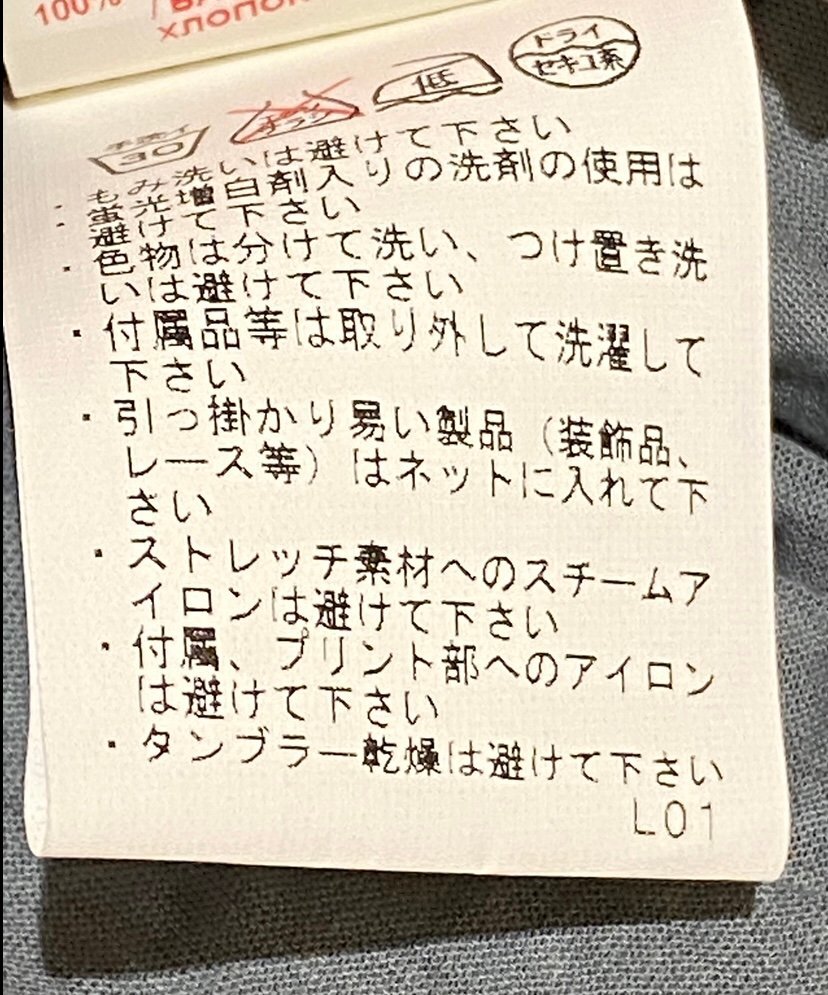 100%
ХЛОПОК
手洗イ
30
エンソ
サラシ
低
ドライ
セキユ系
・もみ洗いは避けて下さい
・蛍光増白剤入りの洗剤の使用は
避けて下さい
・色物は分けて洗い、つけ置き洗
いは避けて下さい
・付属品等は取り外して洗濯して
下さい
・引っ掛かり易い製品（装飾品、
レース等）はネットに入れて下
さい
・ストレッチ素材へのスチームア
イロンは避けて下さい
・付属、プリント部へのアイロン
は避けて下さい
・タンブラー乾燥は避けて下さい
L01